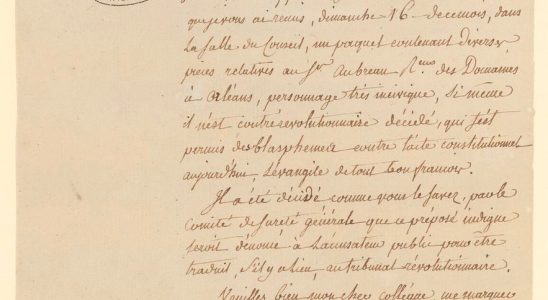 que je vous ai remis, dimanche 16 de ce mois, dans
la salle du Conseil, un paquet contenant diverses
pieces relatives au Sr. Aubreau Rceur des Domaines
à Orléans, personnage très incivique, si même
il n'est contrérévolutionnaire décidé, qui s'est
permis des blasphemes contre l'acte constitutionnel
aujourd'hui, l'évangile de tout bon francois.
Il a été décidé comme vous le savez, par le
Comité de Sureté générale que ce préposé indigne
seroit dénoncé à l'accusateur public pour être
traduit, s'il y a lieu, au tribunal révolutionnaire.
Veuilles bien mon cher collégue, me marquer